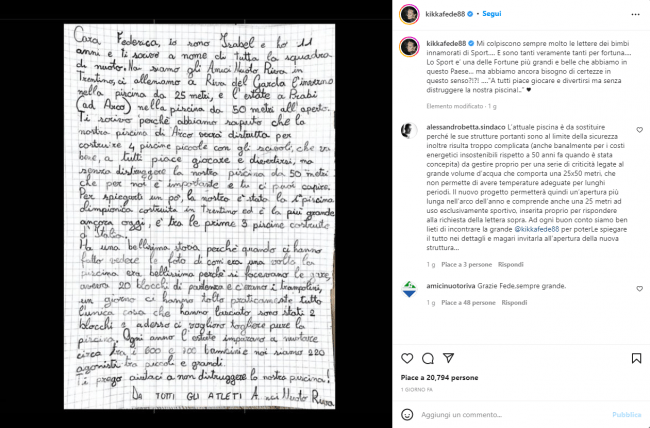 Cara Federica, io sono Isabel e ho 11
anni e ti scrivo a nome di tutta la squadra
di nuoto. Noi siamo gli Amici Nuoto Riva in
Trentino, ci alleniamo a Riva del Garda l'inverno
nella piscina da 25 metri, e l'estate a Prabi
(ad Arco) nella piscina da 50 metri all'aperto.
Ti scrivo perchè abbiamo saputo che la
nostra piscina di Arco verrà distrutta per
costruire 4 piscine piccole con gli scivoli, che va
bene, a tutti piace giocare e divertirsi, ma
senza distruggere la nostra piscina da 50 metri
che per noi è importante e tu ci puoi capire.
Per spiegarti un pò, la nostra è stata la 1ª piscina
olimpionica costruita in Trentino ed è la più grande
ancora oggi, e tra le prime 3 piscine costruite
d'Italia.
Ha una bellissima storia perchè quando ci hanno
fatto vedere le foto di com'era una volta la
piscina era bellissima perchè si facevano le gare,
aveva 20 blocchi di partenza e c'erano i trampolini,
un giorno ci hanno tolto praticamente tutto
l'unica cosa che hanno lasciato sono stati 2
blocchi e adesso ci vogliono togliere pure la
piscina. Ogni anno l'estate imparano a nuotare
circa tra i 600 e 700 bambini e noi siamo 220
agonisti tra piccoli e grandi.
Ti prego aiutaci a non distruggere la nostra piscina!
DA TUTTI GLI ATLETI Amici Nuoto Riva
kikkafede88 • Segui
kikkafede88 Mi colpiscono sempre molto le lettere dei bimbi
innamorati di Sport.... E sono tanti veramente tanti per fortuna....
Lo Sport e' una delle Fortune più grandi e belle che abbiamo in
questo Paese... ma abbiamo ancora bisogno di certezze in
questo senso?!?! ...."A tutti piace giocare e divertirsi ma senza
distruggere la nostra piscina!.." ♥
Elemento modificato · 1 g
alessandrobetta.sindaco L'attuale piscina è da sostituire
perché le sue strutture portanti sono al limite della sicurezza
inoltre risulta troppo complicata (anche banalmente per i costi
energetici insostenibili rispetto a 50 anni fa quando è stata
concepita) da gestire proprio per una serie di criticità legate al
grande volume d'acqua che comporta una 25x50 metri, che
non permette di avere temperature adeguate per lunghi
periodi. Il nuovo progetto permetterà quindi un'apertura più
lunga nell'arco dell'anno e comprende anche una 25 metri ad
uso esclusivamente sportivo, inserita proprio per rispondere
alla richiesta della lettera sopra. Ad ogni buon conto siamo ben
lieti di incontrare la grande @kikkafede88 per poterLe spiegare
il tutto nei dettagli e magari invitarla all'apertura della nuova
struttura...
1 g Piace a 3 persone Rispondi
amicinuotoriva Grazie Fede,sempre grande.
1 g Piace a 48 persone Rispondi
Piace a 20,794 persone
1 GIORNO FA
Aggiungi un commento...
Pubblica